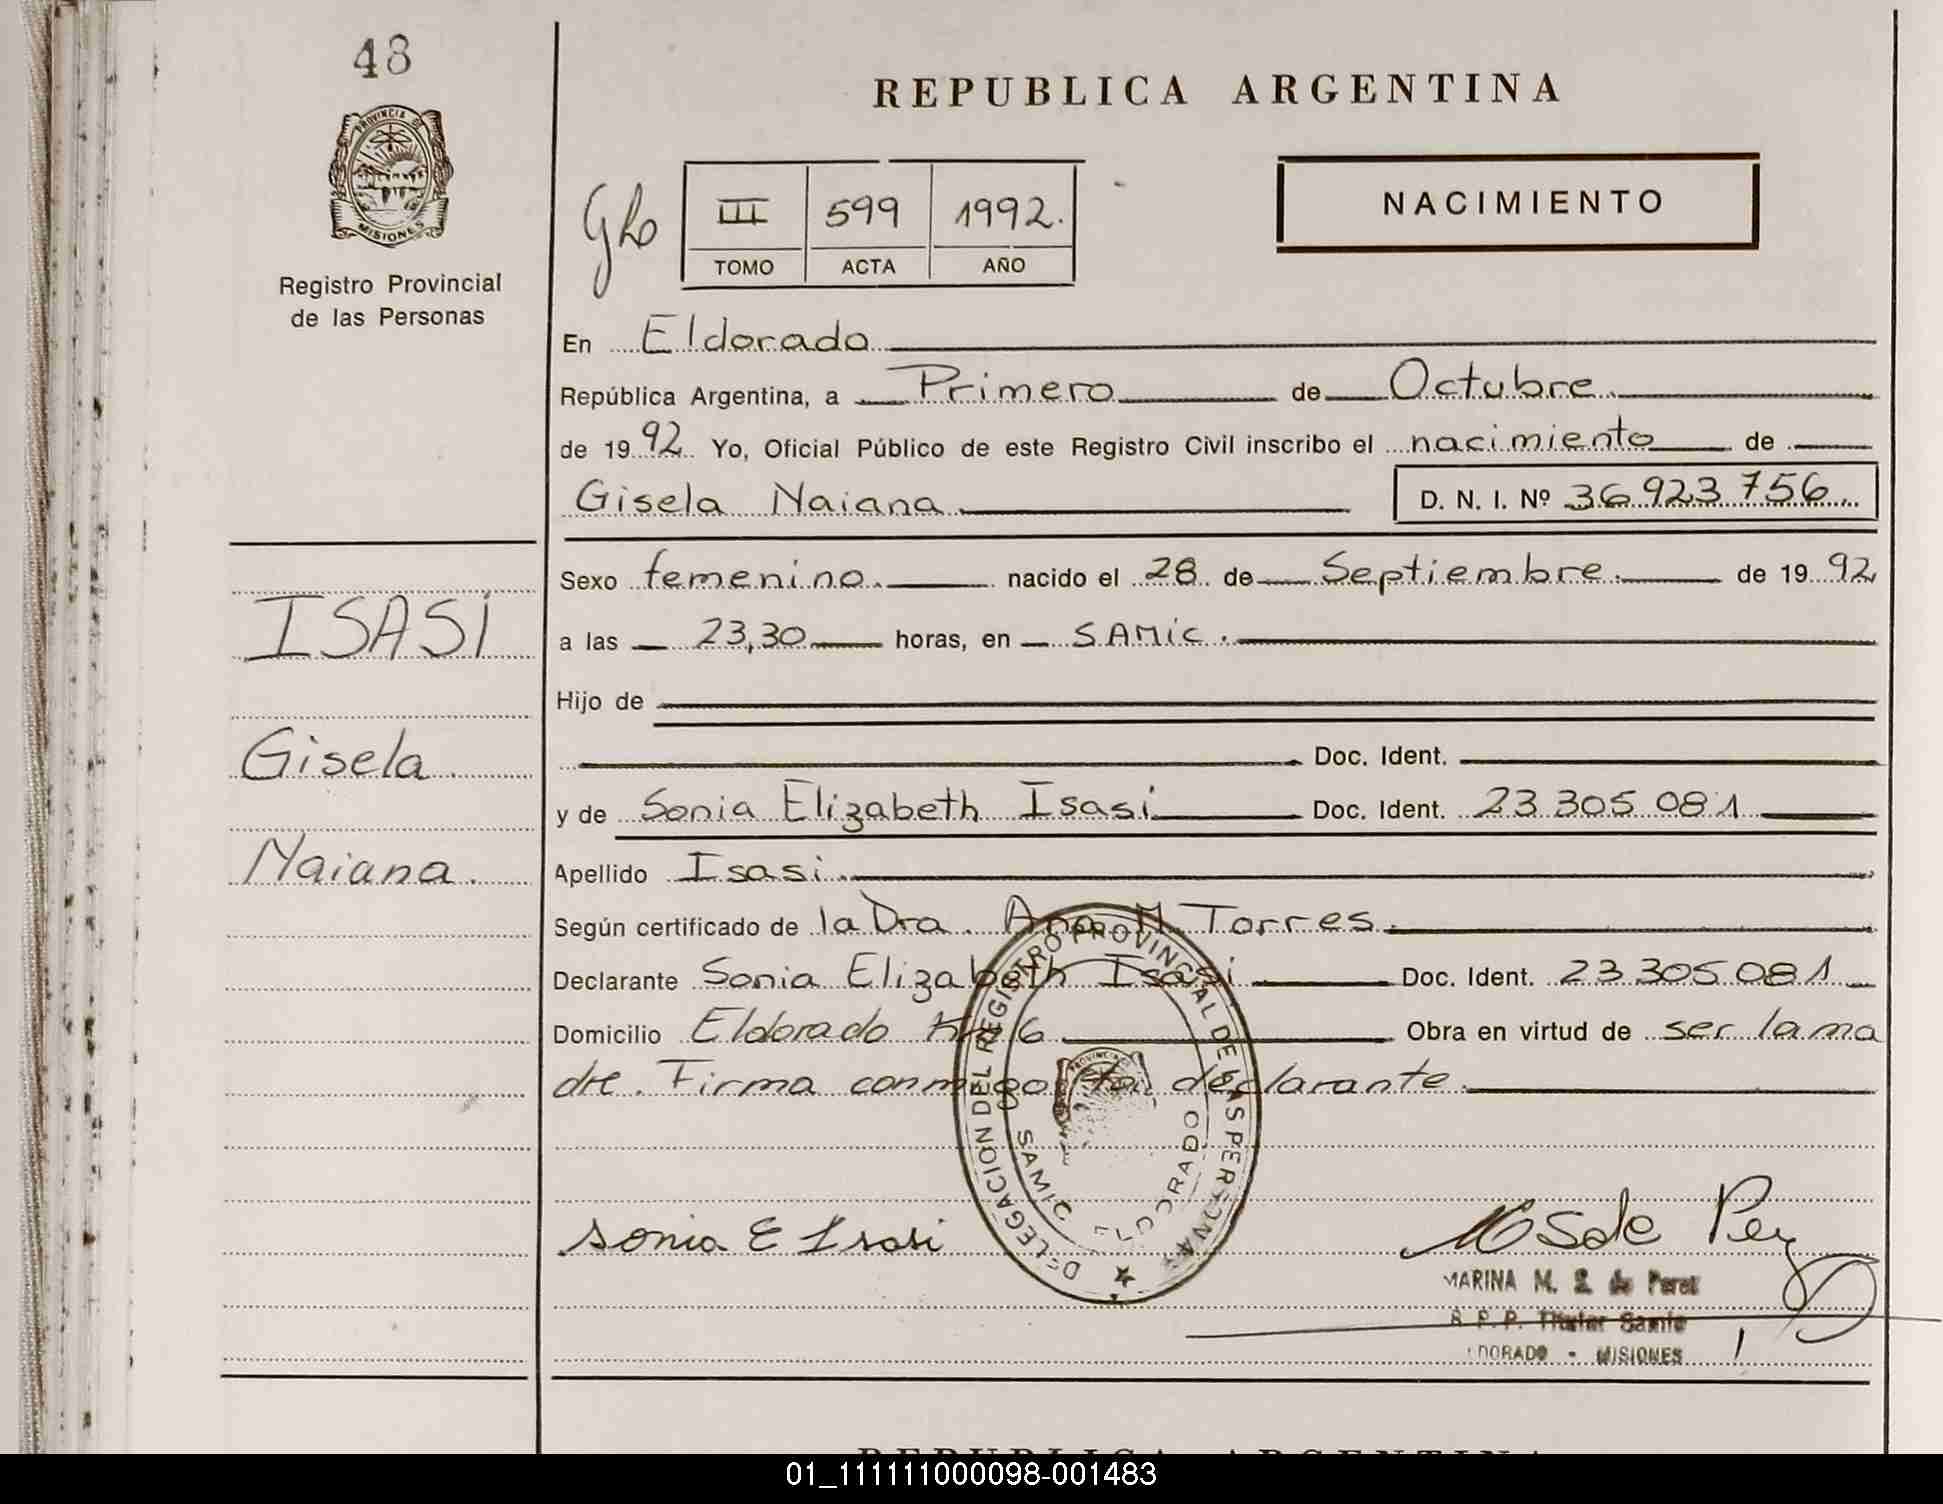 48
PROVINCIA DE
MISIONES
Registro Provincial
de las Personas
REPUBLICA ARGENTINA
NACIMIENTO
III 599 1992.
TOMO ACTA AÑO
En Eldorado
República Argentina, a Primero de Octubre.
de 1992. Yo, Oficial Público de este Registro Civil inscribo el nacimiento de
Gisela Naiana D. N. I. Nº 36.923.756.
Sexo femenino. nacido el 28 de Septiembre. de 1992
a las 23,30 horas, en SAMiC.
Hijo de
Doc. Ident.
y de Sonia Elizabeth Isasi Doc. Ident. 23.305.081
Apellido Isasi.
Según certificado de la Dra. Ana M. Torres.
Declarante Sonia Elizabeth Isasi Doc. Ident. 23.305.081
Domicilio Eldorado Km 6 Obra en virtud de ser la ma
dre. Firma conmigo la declarante.
ISASI
Gisela
Naiana.
DELEGACION DEL REGISTRO PROVINCIAL DE LAS PERSONAS
SAMIC ELDORADO
Sonia E Isasi
MSde Perez
MARINA M. S. de Perez
R.P.P. Titular Samic
LDORADO - MISIONES
REPUBLICA ARGENTINA
01_111111000098-001483